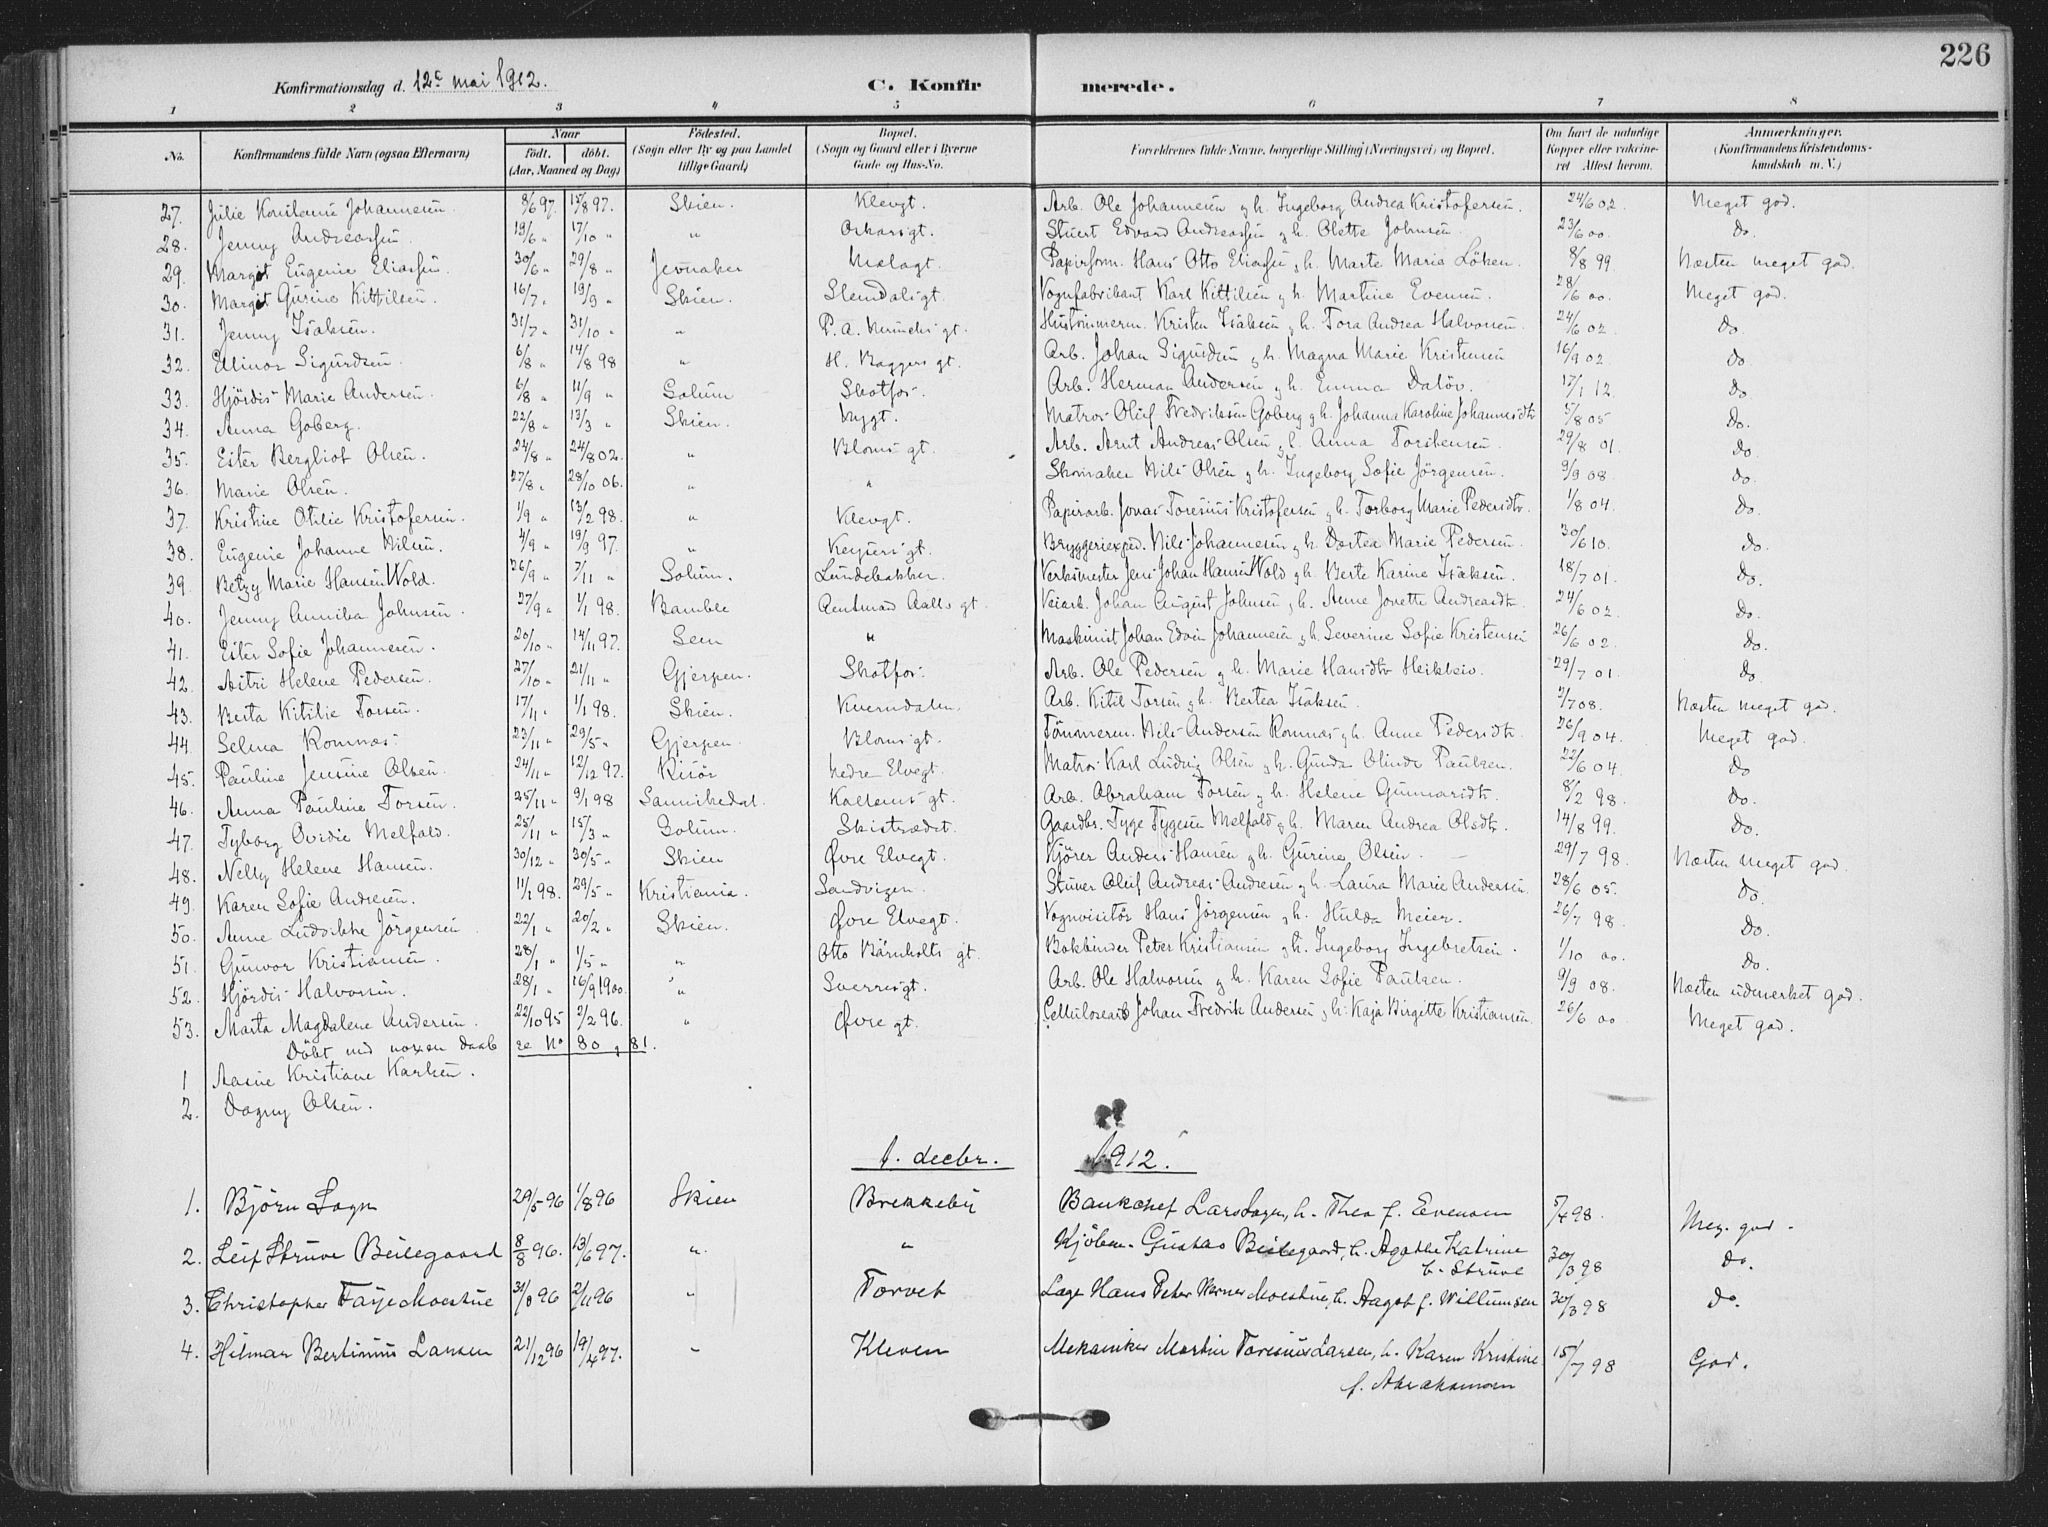 226
Konfirmationsdag d. 12te mai 1912. C. Konfirmerede.
1 2 3 4 5 6 7 8
No. Konfirmandens fulde Navn (ogsaa Efternavn) Naar født. døbt. (Aar, Maaned og Dag) Fødested. (Sogn eller By og paa Landet tillige Gaard) Bopæl. (Sogn og Gaard eller i Byerne Gade og Hus-No. Forældrenes fulde Navne, borgerlige Stilling (Næringsvei) og Bopæl. Om havt de naturlige Kopper eller vaccineret Attest herom. Anmærkninger. (Konfirmandens Kristendomskundskab m. V.)
27. Julie Konstanse Johannesen. 8/6 97. 15/8 97. Skien. Klevgt. Arb. Ole Johannesen og h. Ingeborg Andrea Kristofersen. 24/6 02. Meget god.
28. Jenny Andreassen. 19/6 " 17/10 " " Oskarsgt. Stuert Edvard Andreassen og h. Olette Johnsen. 23/6 00. Do.
29. Margit Eugenie Eliassen. 30/6 " 29/8 " Jevnaker Mælagt. Papirform. Hans Otto Eliassen og h. Marte Marie Löken. 8/8 99 Næsten meget god.
30. Margit Gurine Kittilsen. 16/7 " 19/9 " Skien. Slemdalsgt Vognfabrikant Karl Kittilsen og h. Martine Evensen. 28/6 00. Meget god.
31. Jenny Isaksen. 31/7 " 31/10 " " P. A. Munchs gt. Hustömmerm. Kristen Isaksen og h. Tora Andrea Halvorsen. 24/6 02. Do
32. Ellinor Sigurdsen. 6/8 " 14/8 98 " H. Baggers gt. Arb. Johan Sigurdsen og h. Magna Marie Kristensen 16/9 02 Do
33. Hjördis Marie Andersen. 6/8 " 11/9 " Solum Skotfos. Arb. Herman Andersen og h. Emma Dalöv. 17/1 12 Do.
34. Anna Goberg. 22/8 " 13/3 " Skien. Nygt. Matros Oluf Fredriksen Goberg og h. Johanna Karoline Johannesdtr 5/8 05 Do.
35. Ester Bergliot Olsen. 24/8 " 24/8 02. " Bloms gt. Arb. Arnt Andreas Olsen og h. Anna Torstensen. 29/8 01. Do.
36. Marie Olsen. 27/8 " 28/10 06. " " Skomaker Nils Olsen og h. Ingeborg Sofie Jörgensen. 9/9 08. Do.
37. Kristine Otilie Kristofersen. 1/9 " 13/2 98. " Klevgt. Papirarb. Jonas Toresius Kristofersen og h. Torborg Marie Pedersdtr. 1/8 04. Do.
38. Eugenie Johanne Nilsen. 4/9 " 19/9 97. " Keysers gt. Bryggeriexped. Nils Johannesen og h. Dortea Marie Pedersen. 30/6 10. Do.
39. Betzy Marie Hansen Wold. 26/9 " 7/11 " Solum. Lundebakken. Verksmester Jens Johan Hansen Wold og h. Berte Karine Isaksen. 18/7 01. Do.
40. Jenny Annika Johnsen. 27/9 " 1/1 98. Bamble Amtmand Aalls gt. Veiarb. Johan August Johnsen og h. Anne Jonette Andreasdtr. 24/6 02. Do.
41. Ester Sofie Johannesen. 20/10 " 14/11 97. Sem " Maskinist Johan Edvin Johannesen og h. Severine Sofie Kristensen 26/6 02. Do.
42. Astri Helene Pedersen. 27/10 " 21/11 " Gjerpen. Skotfos. Arb. Ole Pedersen og h. Marie Hansdtr 29/7 01. Do
43. Berta Kitilie Torsen. 17/11 " 1/1 98. Skien. Kverndalen. Arb. Kitil Torsen og h. Bertea Isaksen. 2/7 08. Næsten meget god.
44. Selma Romnæs. 23/11 " 29/5 " Gjerpen. Bloms gt. Tömmerm. Nils Andersen Romnæs og h. Anne Pedersdtr. 26/9 04. Meget god.
45. Pauline Jensine Olsen. 24/11 " 12/12 97. Risör Nedre Elvegt. Matros Karl Ludvig Olsen og h. Gunda Olinde Paulsen. 22/6 04. Do
46. Anna Pauline Torsen. 25/11 " 9/1 98 Sannikedal. gt. Arb. Abraham Torsen og h. Helene Gunnarsdtr. 8/2 98. Do.
47. Tyborg Ovidie Melfald. 25/11 " 15/3 " Solum. Skistrædet. Gaardbr. Tyge Tygesen Melfald og h. Maren Andrea Olsdtr. 14/8 99. Do.
48. Nelly Helene Hansen. 30/12 " 30/5 " Skien Øvre Elvegt. Kjörer Anders Hansen og h. Gurine Olsen. 29/7 98. Næsten meget god.
49. Karen Sofie Andresen. 11/1 98. 29/5 " Kristiania. Sandvigen. Stuver Oluf Andreas Andresen og h. Laura Marie Andersen. 28/6 05. Do.
50. Anne Ludvikke Jörgensen 22/1 " 20/2 " Skien. Øvre Elvegt. Vognvisitör Hans Jörgensen og h. Hulda Meier. 26/7 98. Do.
51. Gunvor Kristiansen. 28/1 " 1/5 " " Otto Bärnholts gt. Bokbinder Peter Kristiansen og h. Ingeborg Ingebretsen. 1/10 00. Do.
52. Hjördis Halvorsen. 28/1 " 16/9 1900. " Sverresgt. Arb. Ole Halvorsen og h. Karen Sofie Paulsen. 9/9 08. Næsten udmerket god.
53. Marta Magdalene Andersen. 22/10 95 2/2 96. " Øvre gt. Cellulosearb Johan Fredrik Andersen og h. Kaja Birgitte Kristiansen. 26/6 00. Meget god.
Döbt ved voxen daab se No 80 og 81.
1 Aasne Kristiane Karlsen.
2. Dagny Olsen.
1. decbr. 1912.
1. Björn Sogn 29/5 96 1/8 96 Skien Brekkeby Bankchef Lars Sogn, h. Thea f. Evensen 5/4 98. Meg. god.
2. Leif Struve Beilegaard 8/8 96. 13/6 97. " " Kjöbm. Gustav Beilegaard, h. Agathe Katrine f. Struve 30/3 98 Do.
3. Christopher Faye Moestue 31/8 96 2/11 96 " Torvet Læge Hans Peter Werner Moestue, h. Aagot f. Willumsen 30/3 98 Do.
4. Hilmar Bertinius Larsen 21/12 96 19/4 97. " Kleven Mekaniker Martin Toresius Larsen, h. Karen Kristine f. Abrahamsen 15/7 98 God.